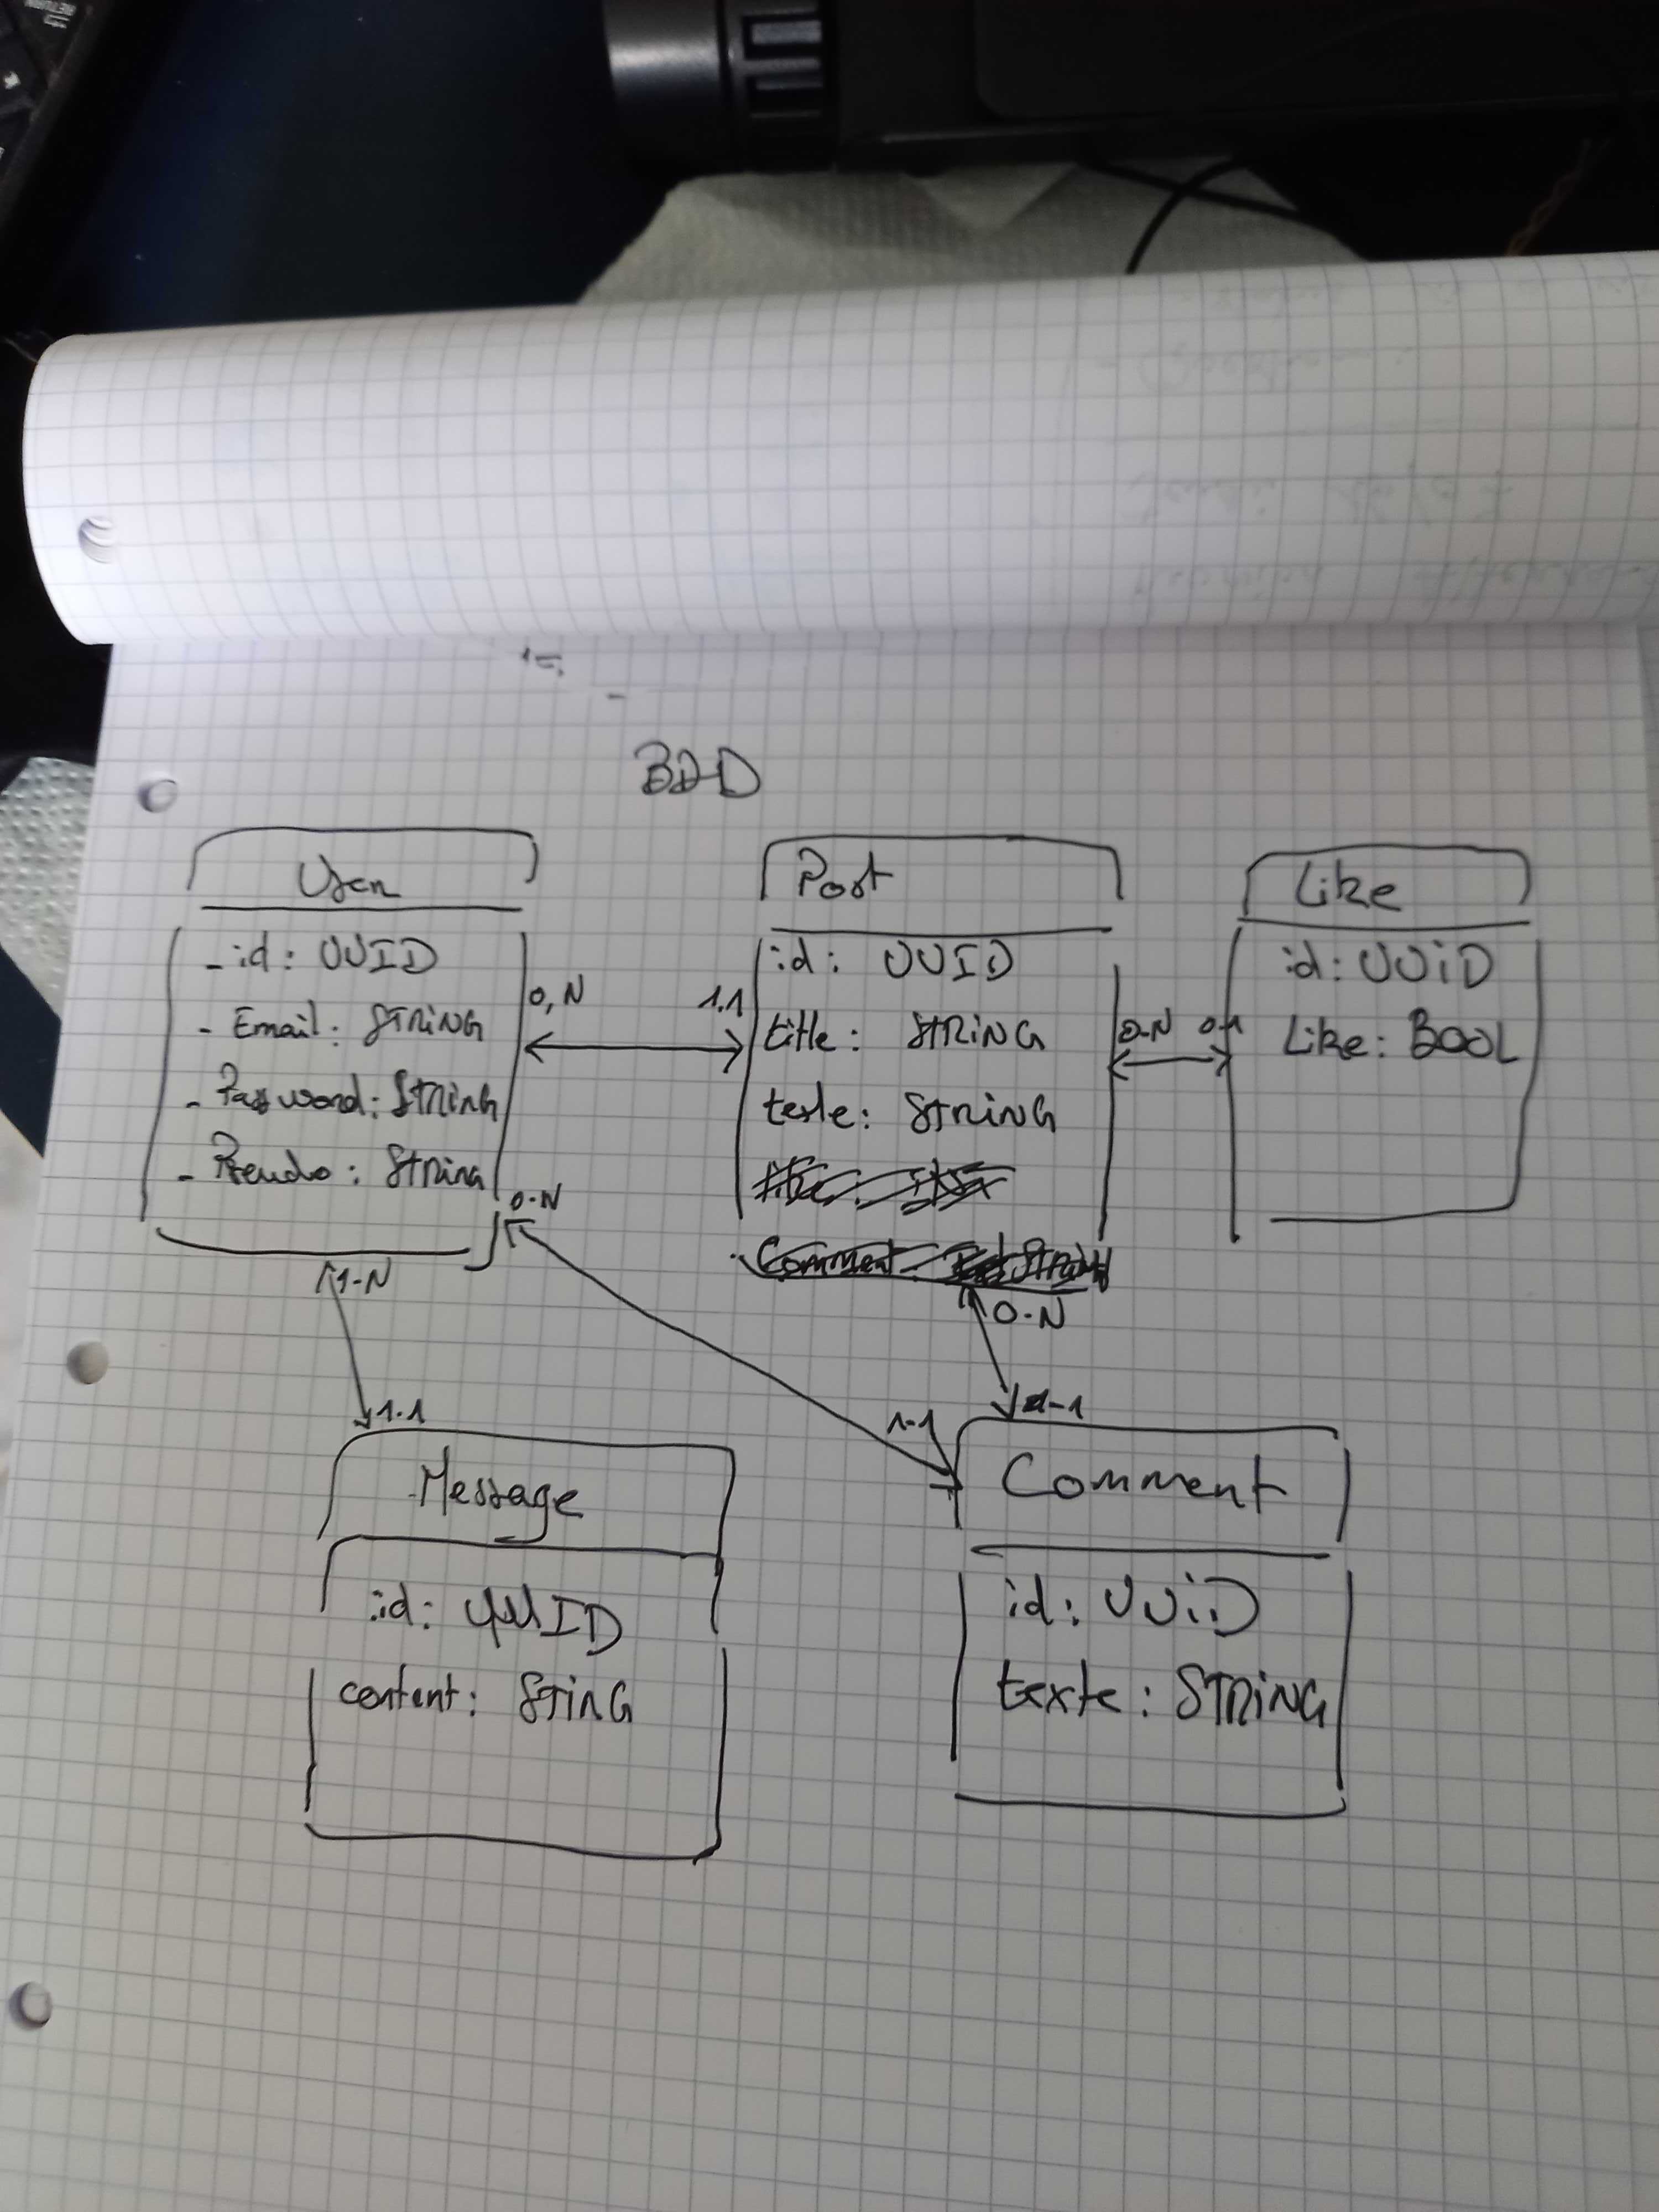 RETURN
BDD
User
- id: UUID
- Email: STRING
- Password: STRING
- Pseudo: STRING
0,N
1.1
Post
id: UUID
title: STRING
texte: STRING
Comment: String
0-N
0-1
Like
id: UUiD
Like: BOOL
0-N
1-N
1-1
0-N
1-1
1-1
Message
id: UUID
content: STinG
Comment
id: UUiD
texte: STRING